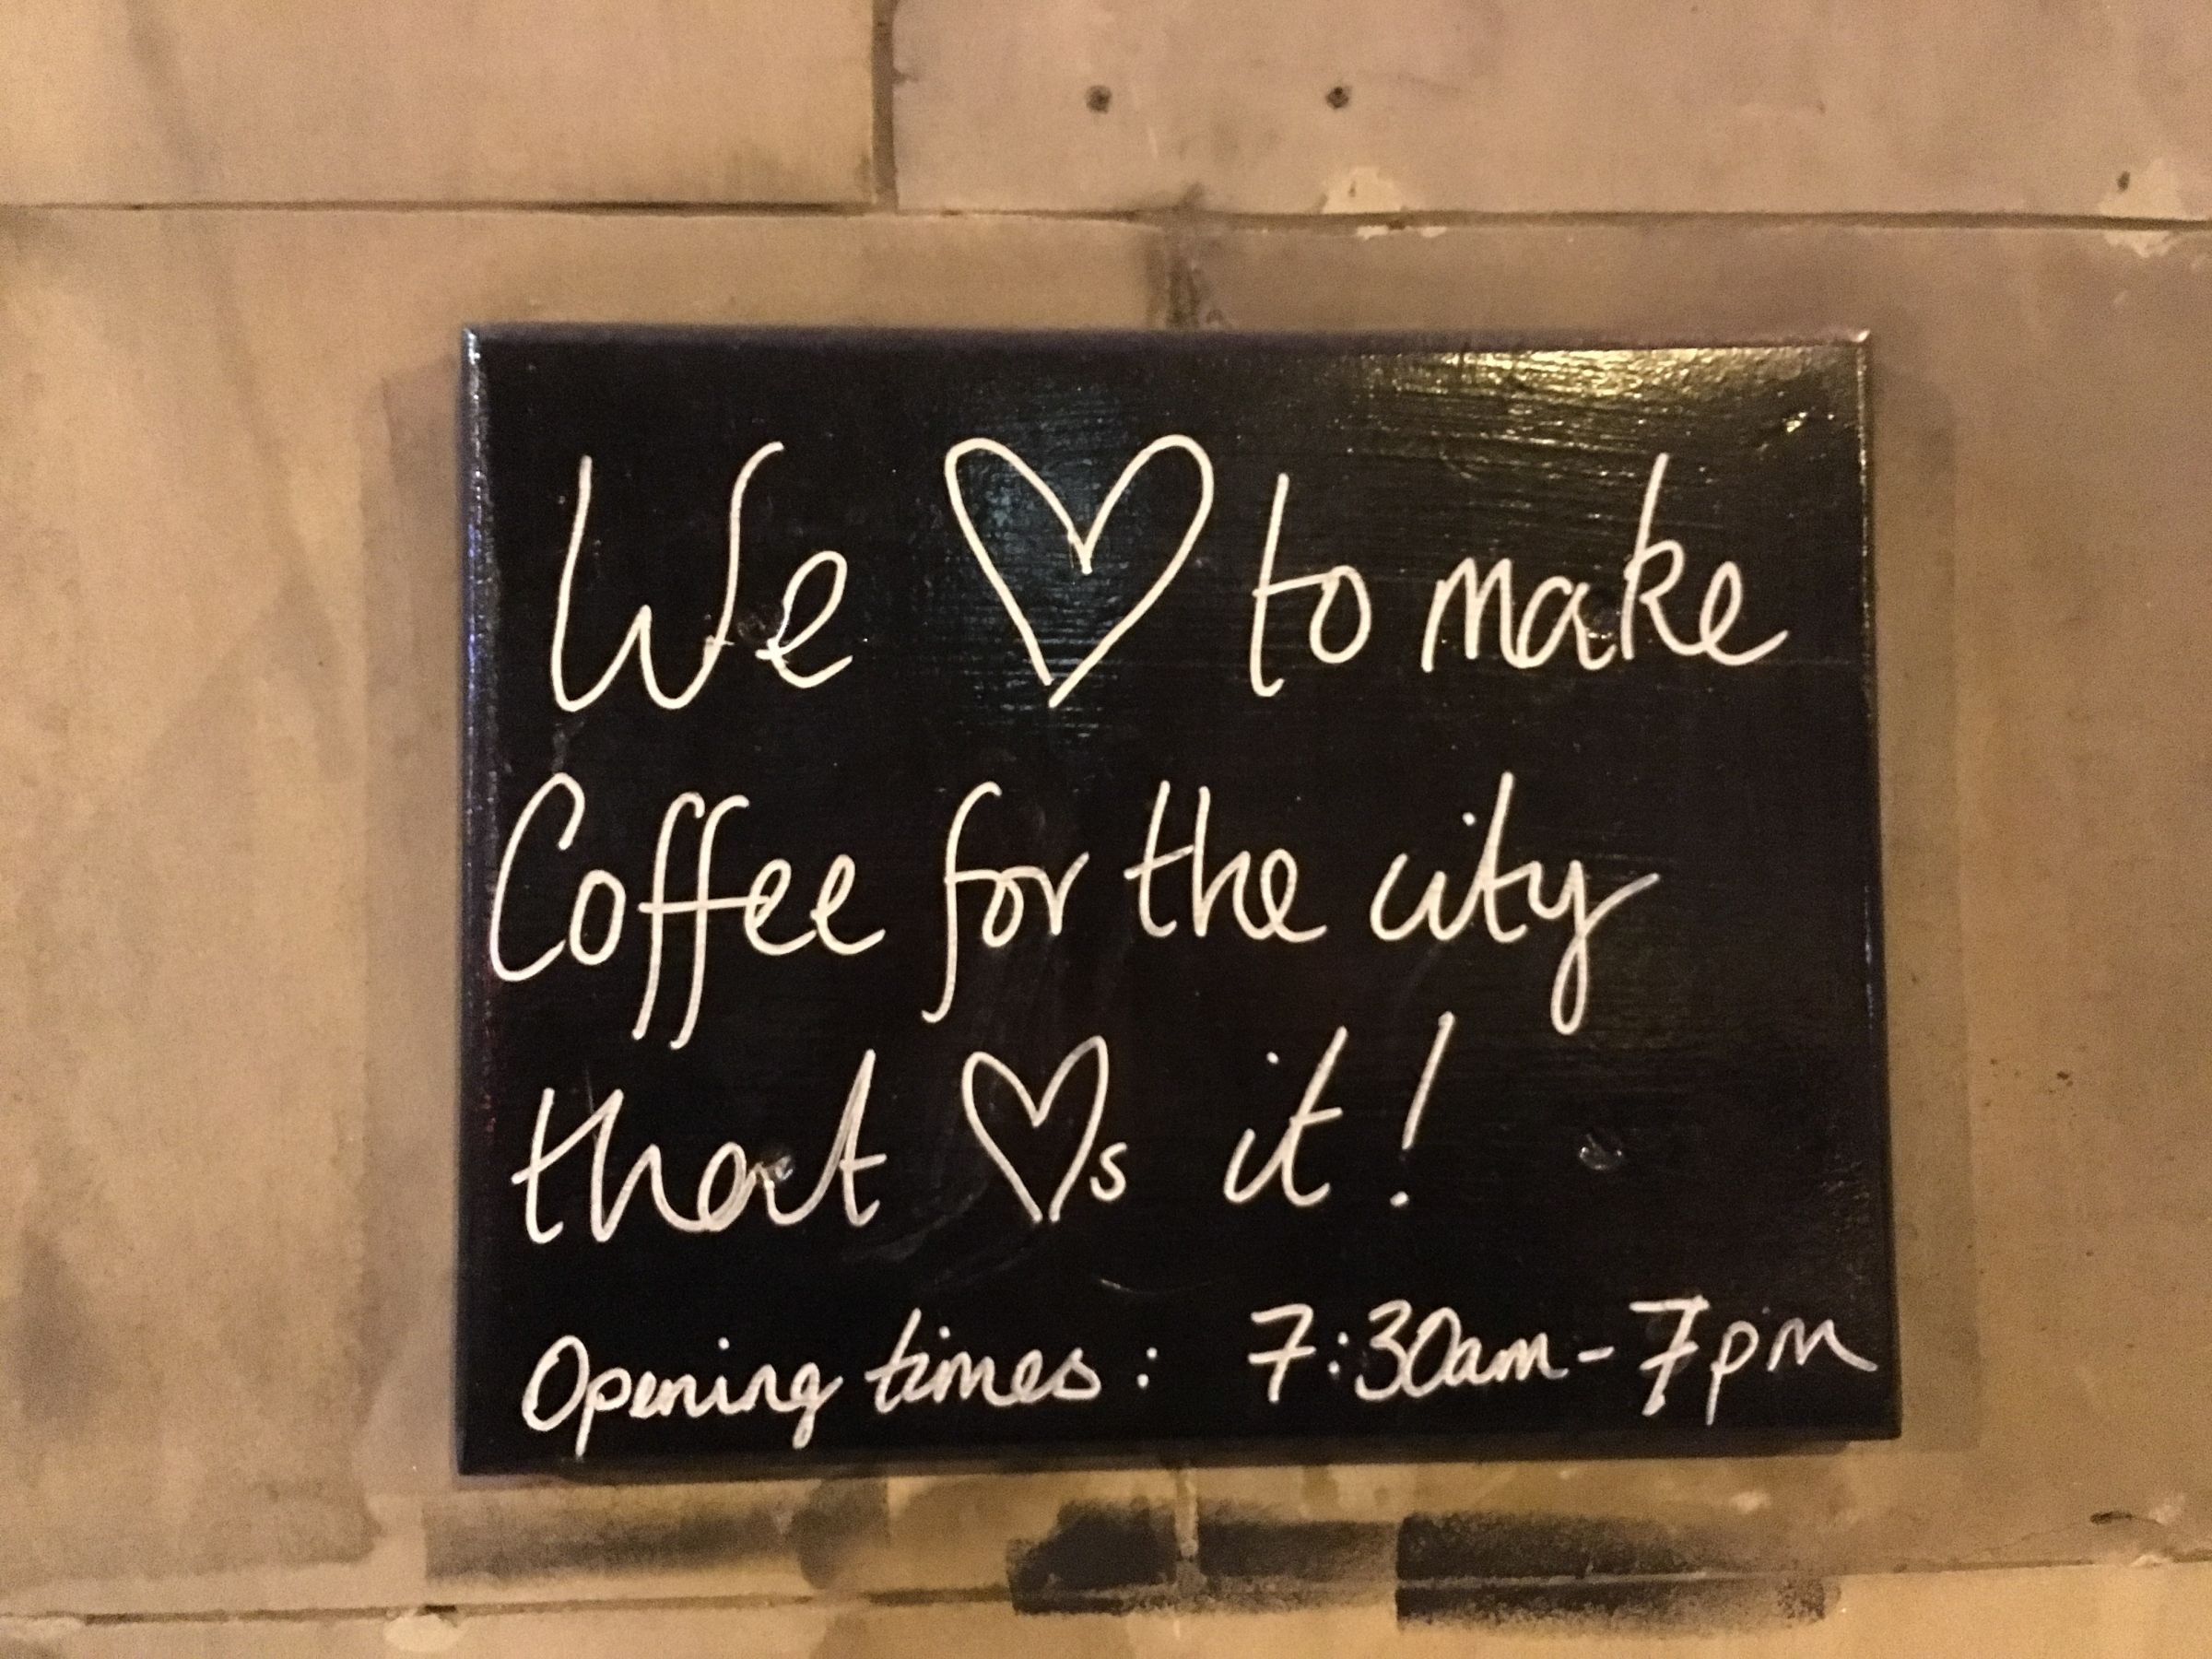 We ♡ to make
Coffee for the city
that ♡s it!
Opening times: 7:30am-7pm